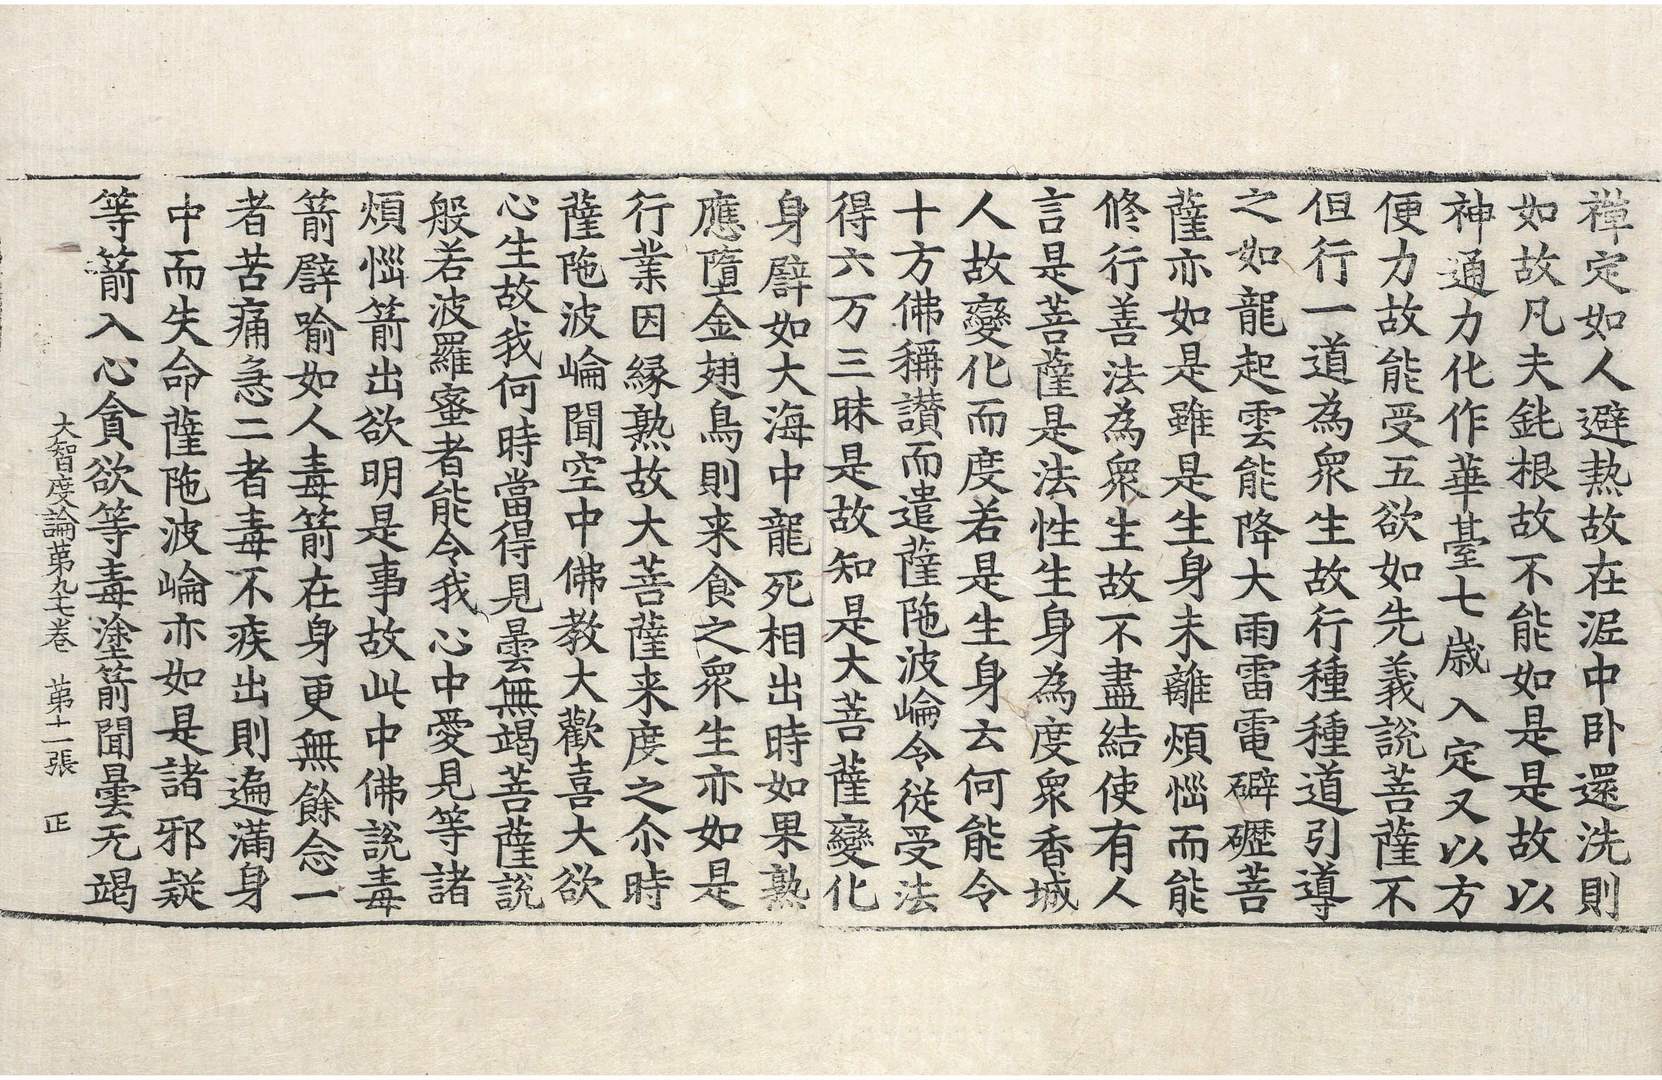 禪定如人避熱故在泥中卧還洗則
如故凡夫鈍根故不能如是是故以
神通力化作華臺七歲入定又以方
便力故能受五欲如先義說菩薩不
但行一道為衆生故行種種道引導
之如龍起雲能降大雨雷電礔礰菩
薩亦如是雖是生身未離煩惱而能
修行善法為衆生故不盡結使有人
言是菩薩是法性生身為度衆香城
人故變化而度若是生身云何能令
十方佛稱讃而遣薩陁波崘令從受法
得六万三昧是故知是大菩薩變化
身譬如大海中龍死相出時如果熟
應墮金翅鳥則来食之衆生亦如是
行業因縁熟故大菩薩来度之尒時
薩陁波崘聞空中佛教大歡喜大欲
心生故我何時當得見曇無竭菩薩說
般若波羅蜜者能令我心中愛見等諸
煩惱箭出欲明是事故此中佛說毒
箭譬喻如人毒箭在身更無餘念一
者苦痛急二者毒不疾出則遍滿身
中而失命薩陁波崘亦如是諸邪疑
等箭入心貪欲等毒塗箭聞曇无竭
大智度論第九七卷 第十一張 正